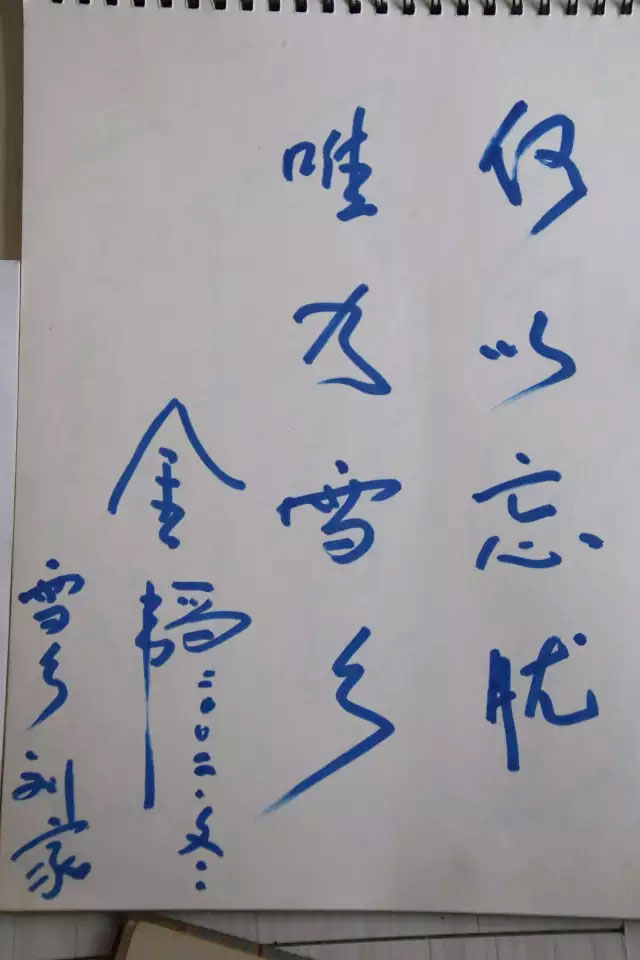 何以忘忧
唯为雪乡
金韬
二〇〇二.冬
雪乡刘家